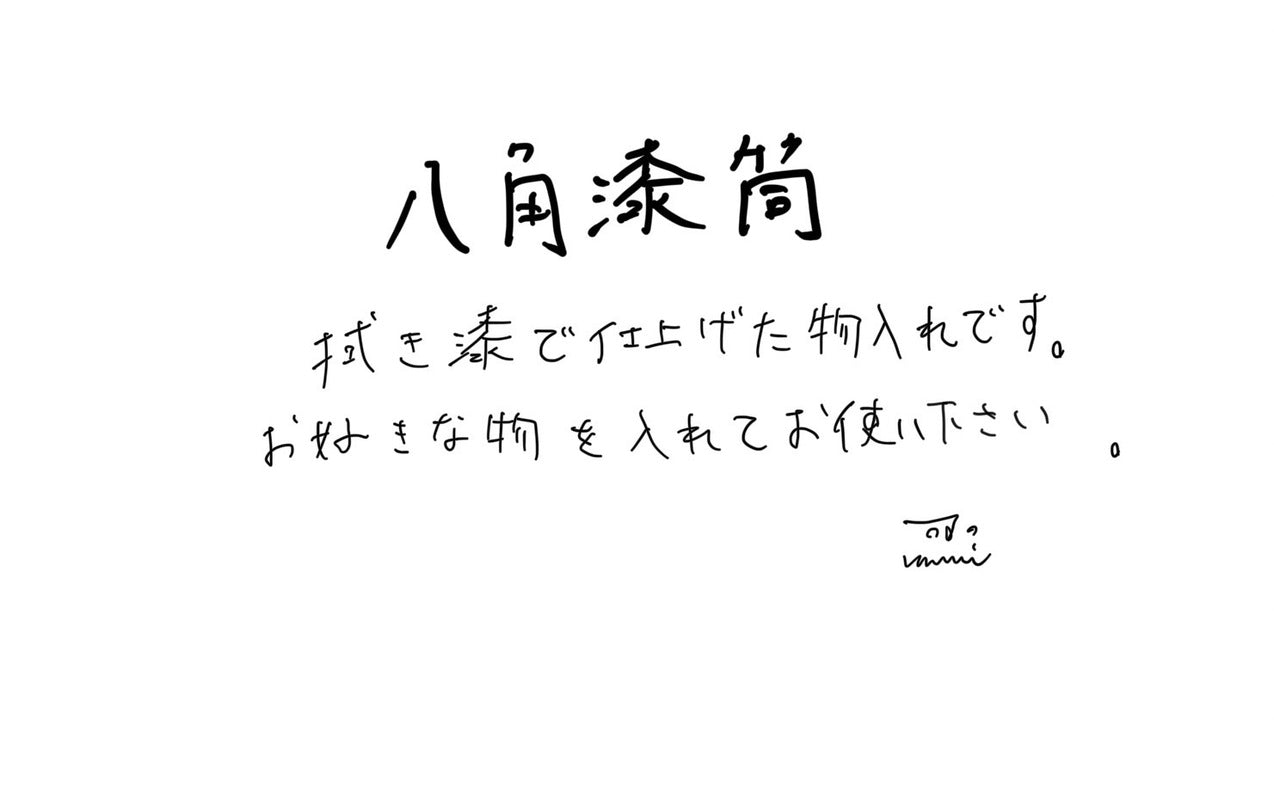 八角漆筒
拭き漆で仕上げた物入れです。
お好きな物を入れてお使い下さい。